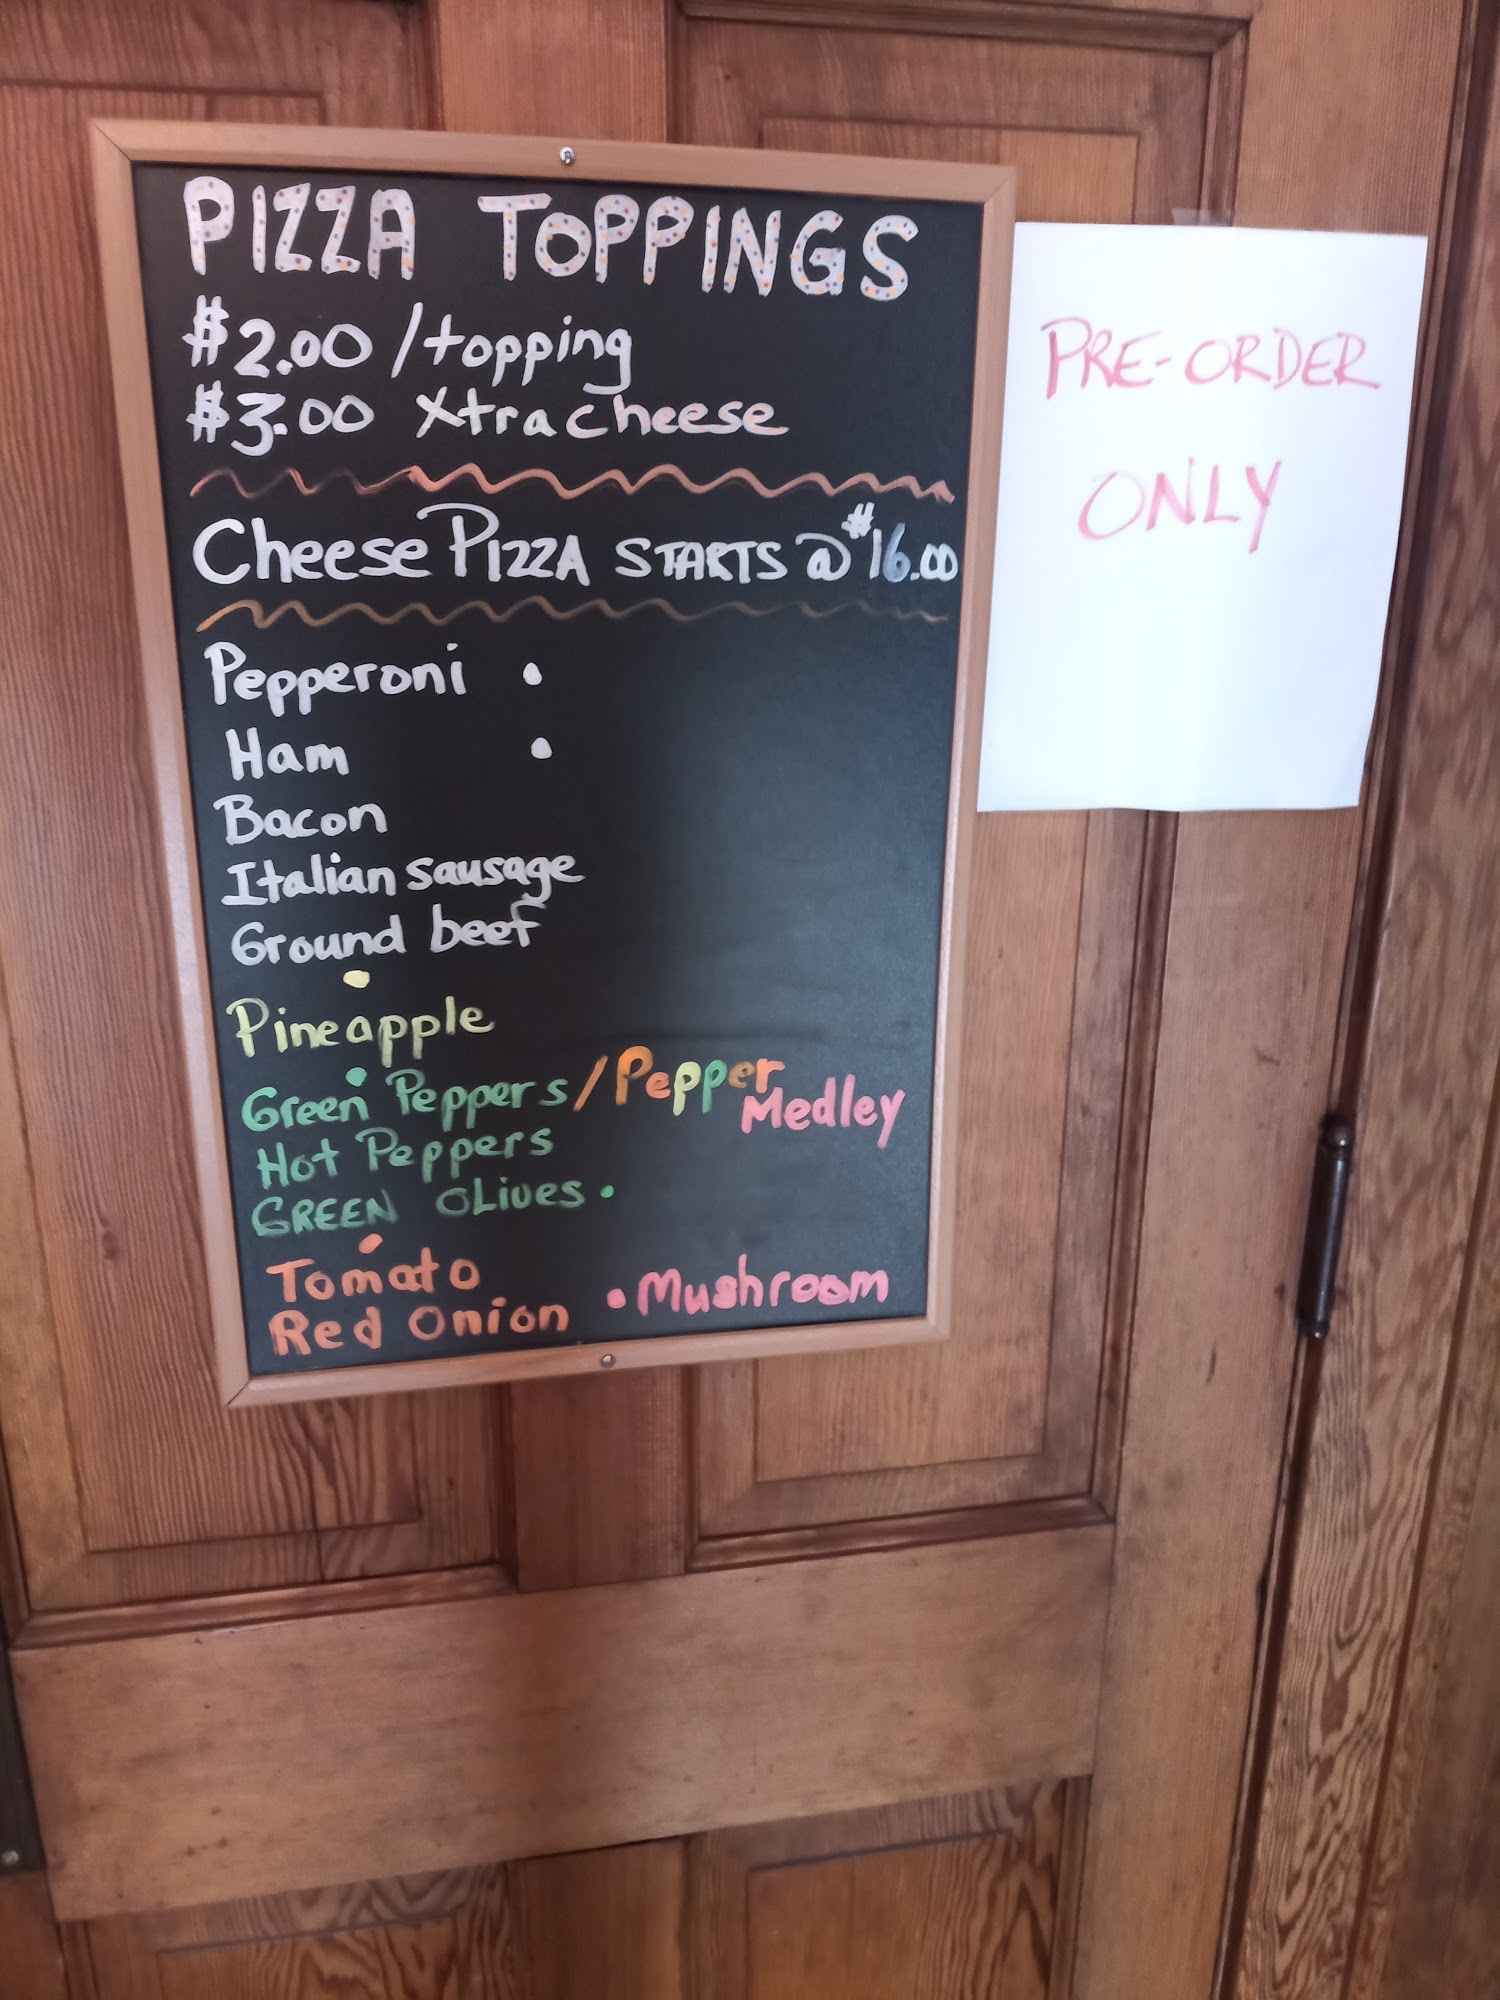 PIZZA TOPPINGS
$2.00 /topping
$3.00 Xtra cheese
Cheese PIZZA STARTS @ $16.00
Pepperoni •
Ham •
Bacon
Italian sausage
Ground beef
Pineapple
Green Peppers / Pepper Medley
Hot Peppers
GREEN OLives •
Tomato
Red Onion • Mushroom
PRE-ORDER
ONLY